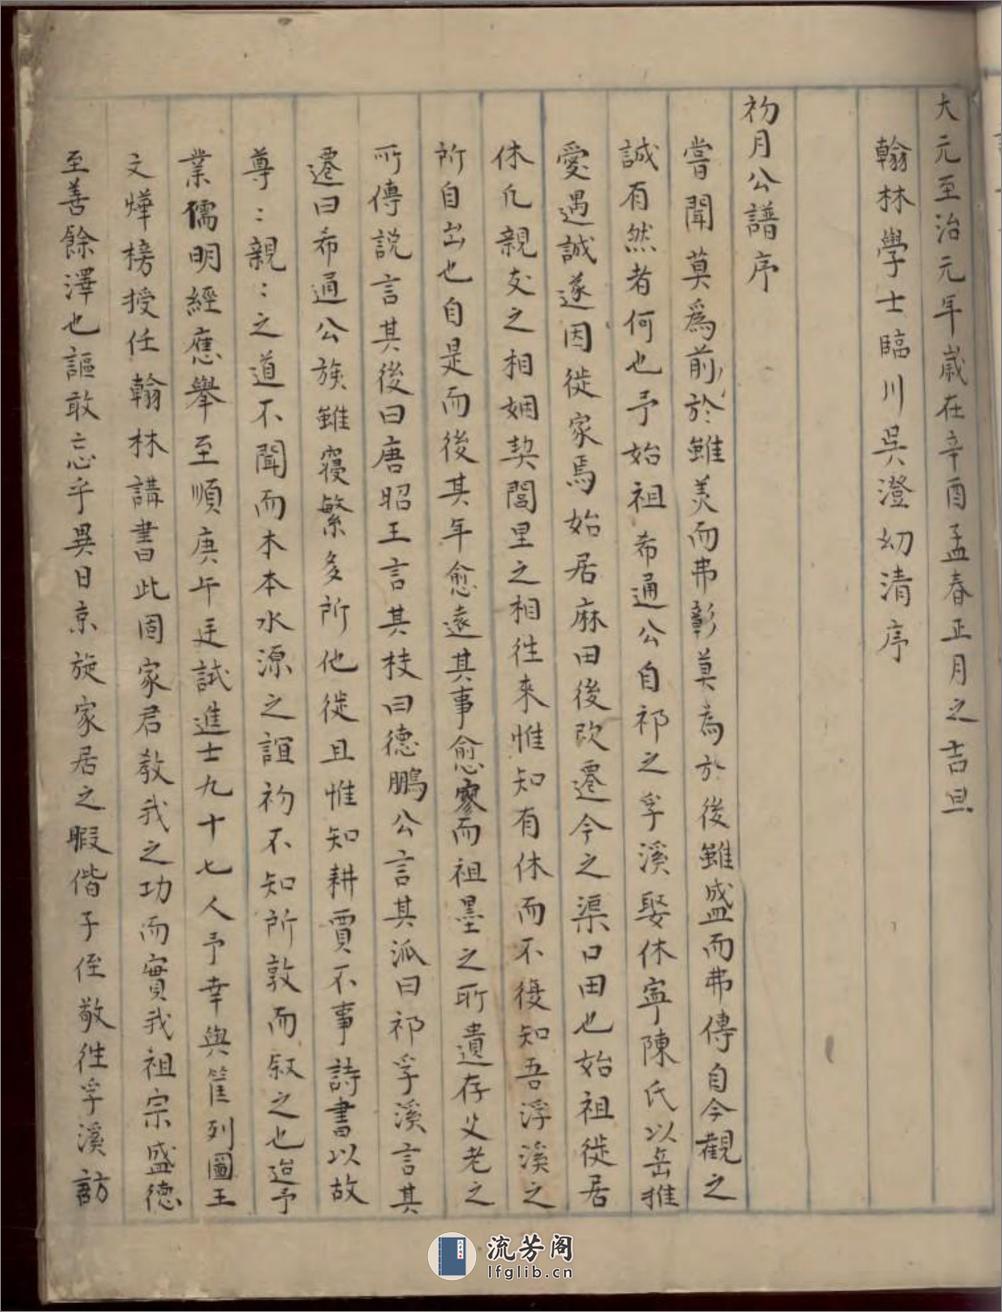 大元至治元年歲在辛酉孟春正月之吉旦
翰林學士臨川吳澄幼清序
初月公譜序
嘗聞莫爲前於雖美而弗彰莫為於後雖盛而弗傳自今觀之
誠有然者何也予始祖希通公自祁之孚溪娶休寧陳氏以岳推
愛遇誠遂因徙家焉始居麻田後改遷今之渠口田也始祖徙居
休凡親友之相姻契閭里之相往來惟知有休而不復知吾浮溪之
所自出也自是而後其年愈遠其事愈寥而祖墨之所遺存父老之
所傳説言其後曰唐昭王言其枝曰德鵬公言其派曰祁孚溪言其
遷曰希通公族雖寖繁多所他徙且惟知耕賈不事詩書以故
尊:親:之道不聞而木本水源之誼初不知所敦而叙之也迨予
業儒明經應舉至順庚午廷試進士九十七人予幸與笡列圖王
文燁榜授任翰林講書此固家君教我之功而實我祖宗盛德
至善餘澤也謳敢忘乎異日京旋家居之暇偕子侄敬往孚溪訪
流芳阁
lfglib.cn